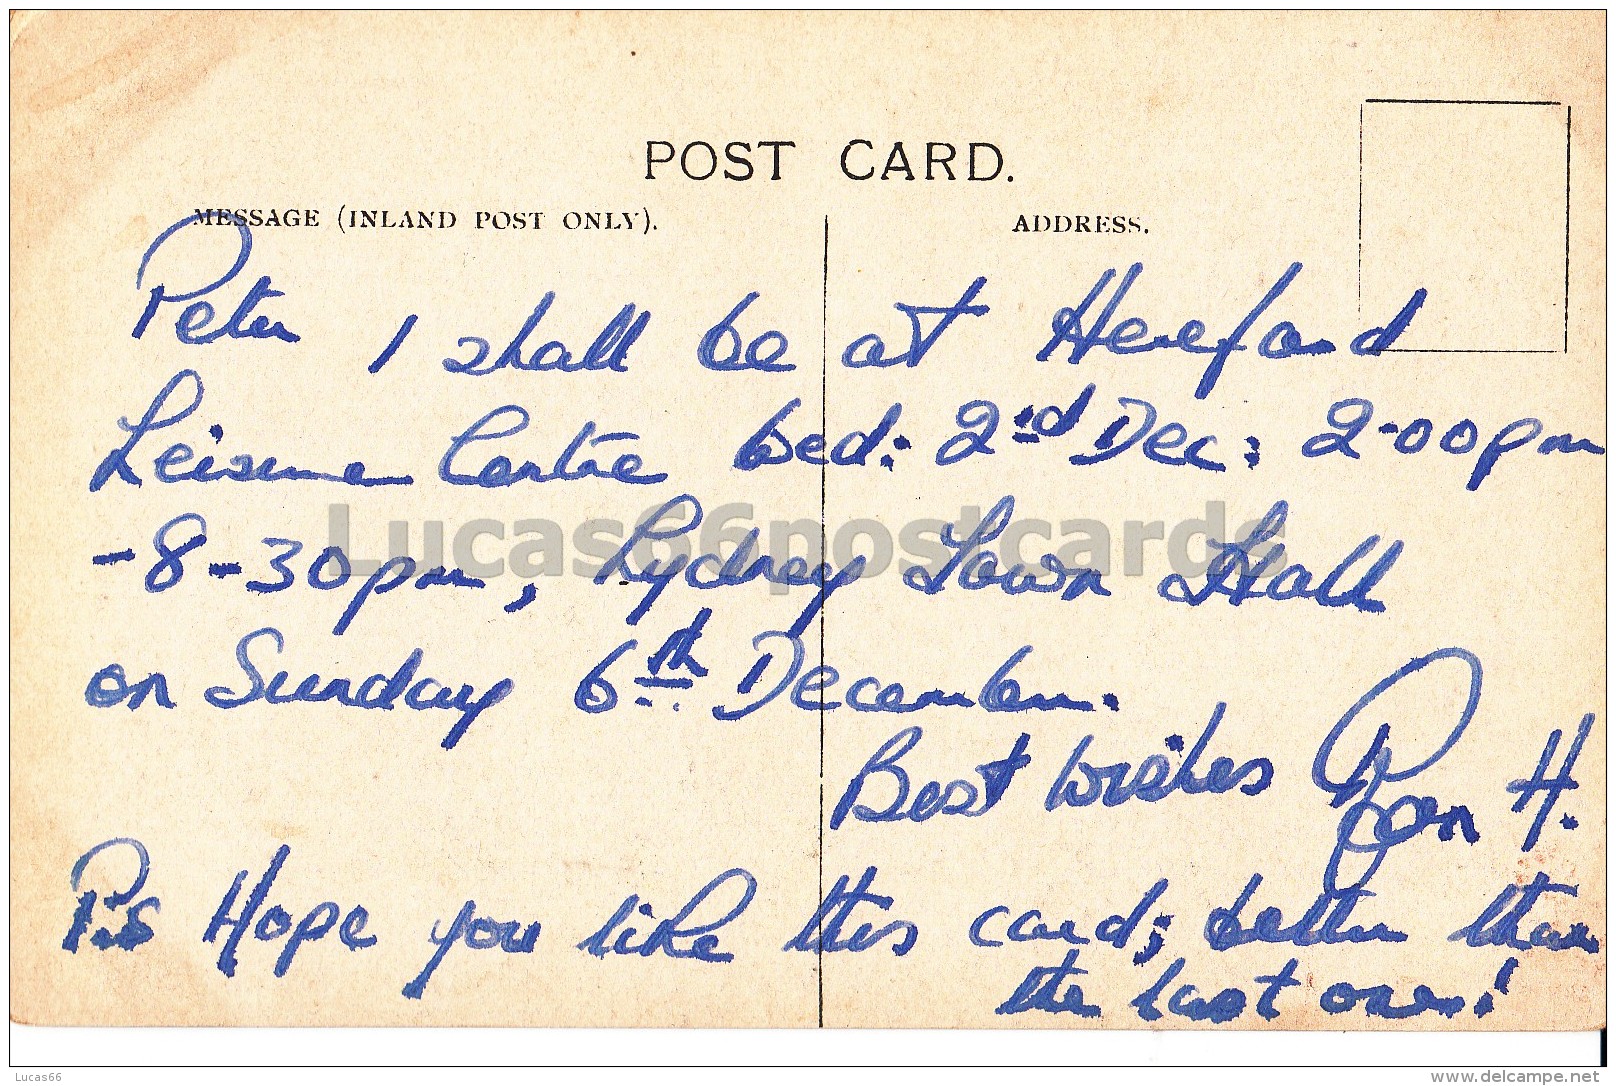 POST CARD.
MESSAGE (INLAND POST ONLY).
ADDRESS.
Peter I shall be at Hereford
Leisure Centre Wed: 2nd Dec: 2-00pm
-8-30pm, Lydney Town Hall
on Sunday 6th December.
Best Wishes Ron H.
P.S Hope you like this card; better than
the last one!
Lucas66postcards
Lucas66
www.delcampe.net